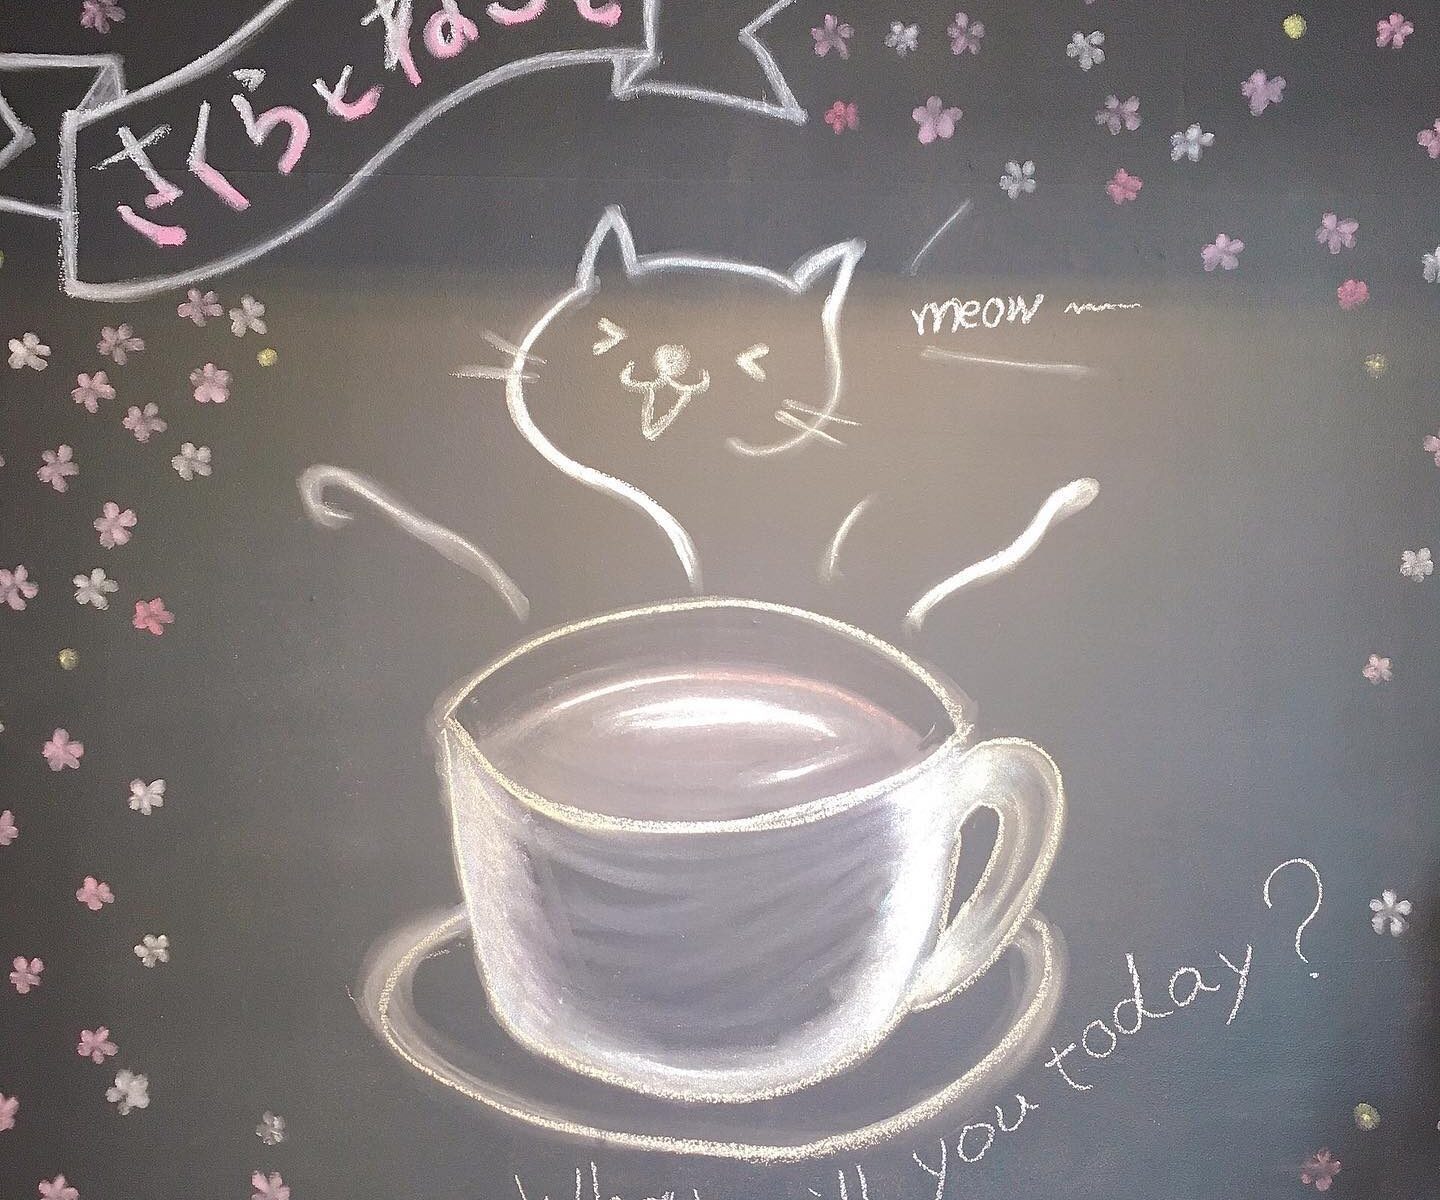 さくらとねこと
meow ~
you today?